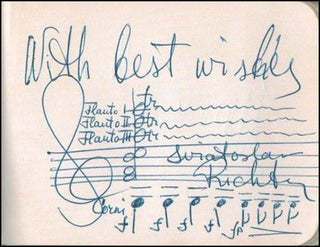 With best wishes
Flauto I tr
Flauto II tr
Flauto III tr
Sviatoslav
Richter
Corni f f f f fp